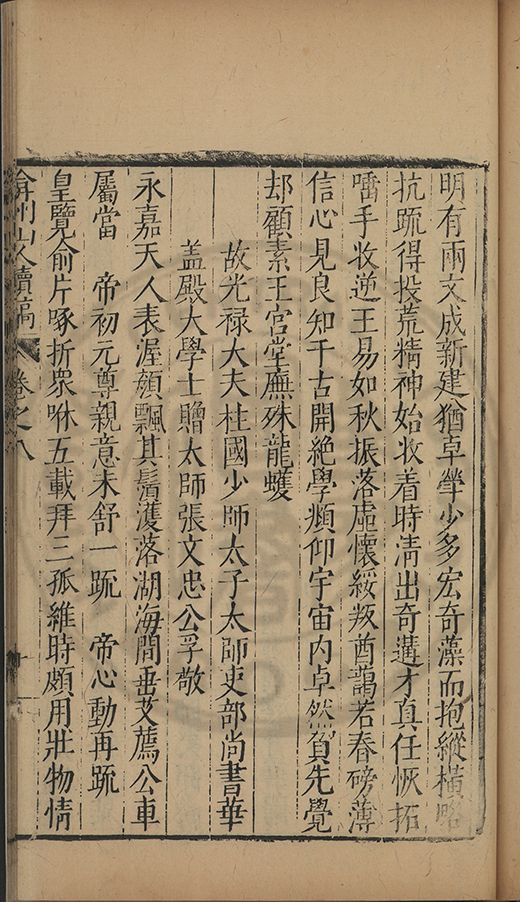 明有兩文成新建猶卓犖少多宏奇藻而抱縱橫略
抗疏得投荒精神始收着時清出奇遘才真任恢拓
嚄手收逆王易如秋振落虛懷綏叛酋藹若春磅薄
信心見良知千古開絕學頫仰宇宙內卓然負先覺
却顧素王宮堂廡殊龍蠖
故光祿大夫柱國少師太子太師吏部尚書華
蓋殿大學士贈太師張文忠公孚敬
永嘉天人表渥顏飄其鬚濩落湖海間垂艾薦公車
屬當 帝初元尊親意未舒一疏 帝心動再疏
皇覽俞片啄折眾咻五載拜三孤維時頗用壯物情
弇州山人續稿 卷之八 十一